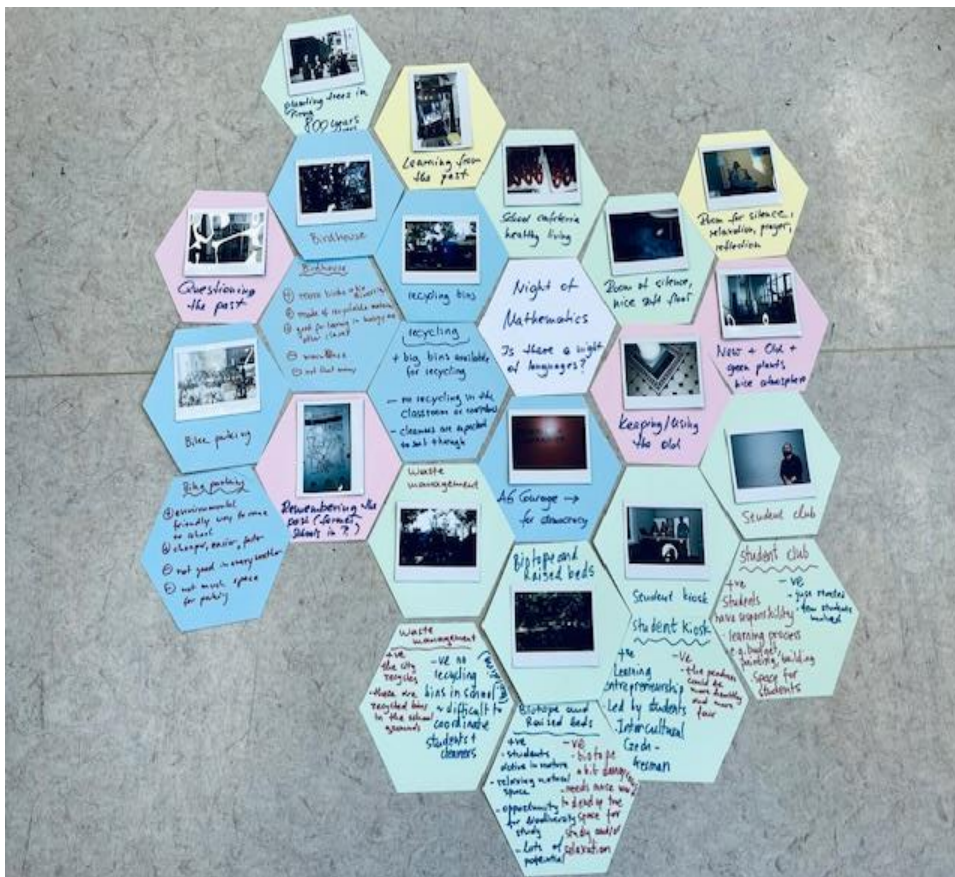 planting trees in
800 years
Learning from
the past
School cafeteria
healthy living
Room for silence,
relaxation, prayer,
reflection
Birdhouse
Questioning
the past
recycling bins
Night of
Mathematics
Is there a night
of languages?
Room of silence,
nice soft floor
New + Old +
green plants
nice atmosphere
Birdhouse
+ more birds
+ made of recyclable material
+ good for learning in biology and
other classes
- not that many
recycling
+ big bins available
for recycling
- no recycling in the
classroom or corridors
- cleaners are expected
to sort through
Bike parking
Keeping/Using
the Old
Student club
Bike parking
+ environmental
friendly way to come
to school
+ cheaper, easier, faster
- not good in every weather
- not much space
for parking
Remembering the
past (former
schools in ?)
Waste
management
AG Courage →
for democracy
Student kiosk
student club
+ve
Students
have responsibility
- learning process
e.g. budget,
painting, building
- Space for
students
- ve
- just started
- few students
involved
Biotope and
Raised beds
Waste
management
+ve
the city
recycles
- there are
recycled bins
in the school
grounds
-ve no
recycling
bins in school
difficult to
coordinate
students +
cleaners
Student kiosk
+ve
Learning
entrepreneurship
- Led by students
- Intercultural
Czech -
German
-ve
- the products
could be
more healthy
and more
fair
Biotope and
Raised beds
+ve
- students
active in nature
- relaxing natural
space
- opportunity
for biodiversity
study
- Lots of
potential
-ve
- biotope
a bit
- needs more work
to develop the
space for
study and/or
relaxation